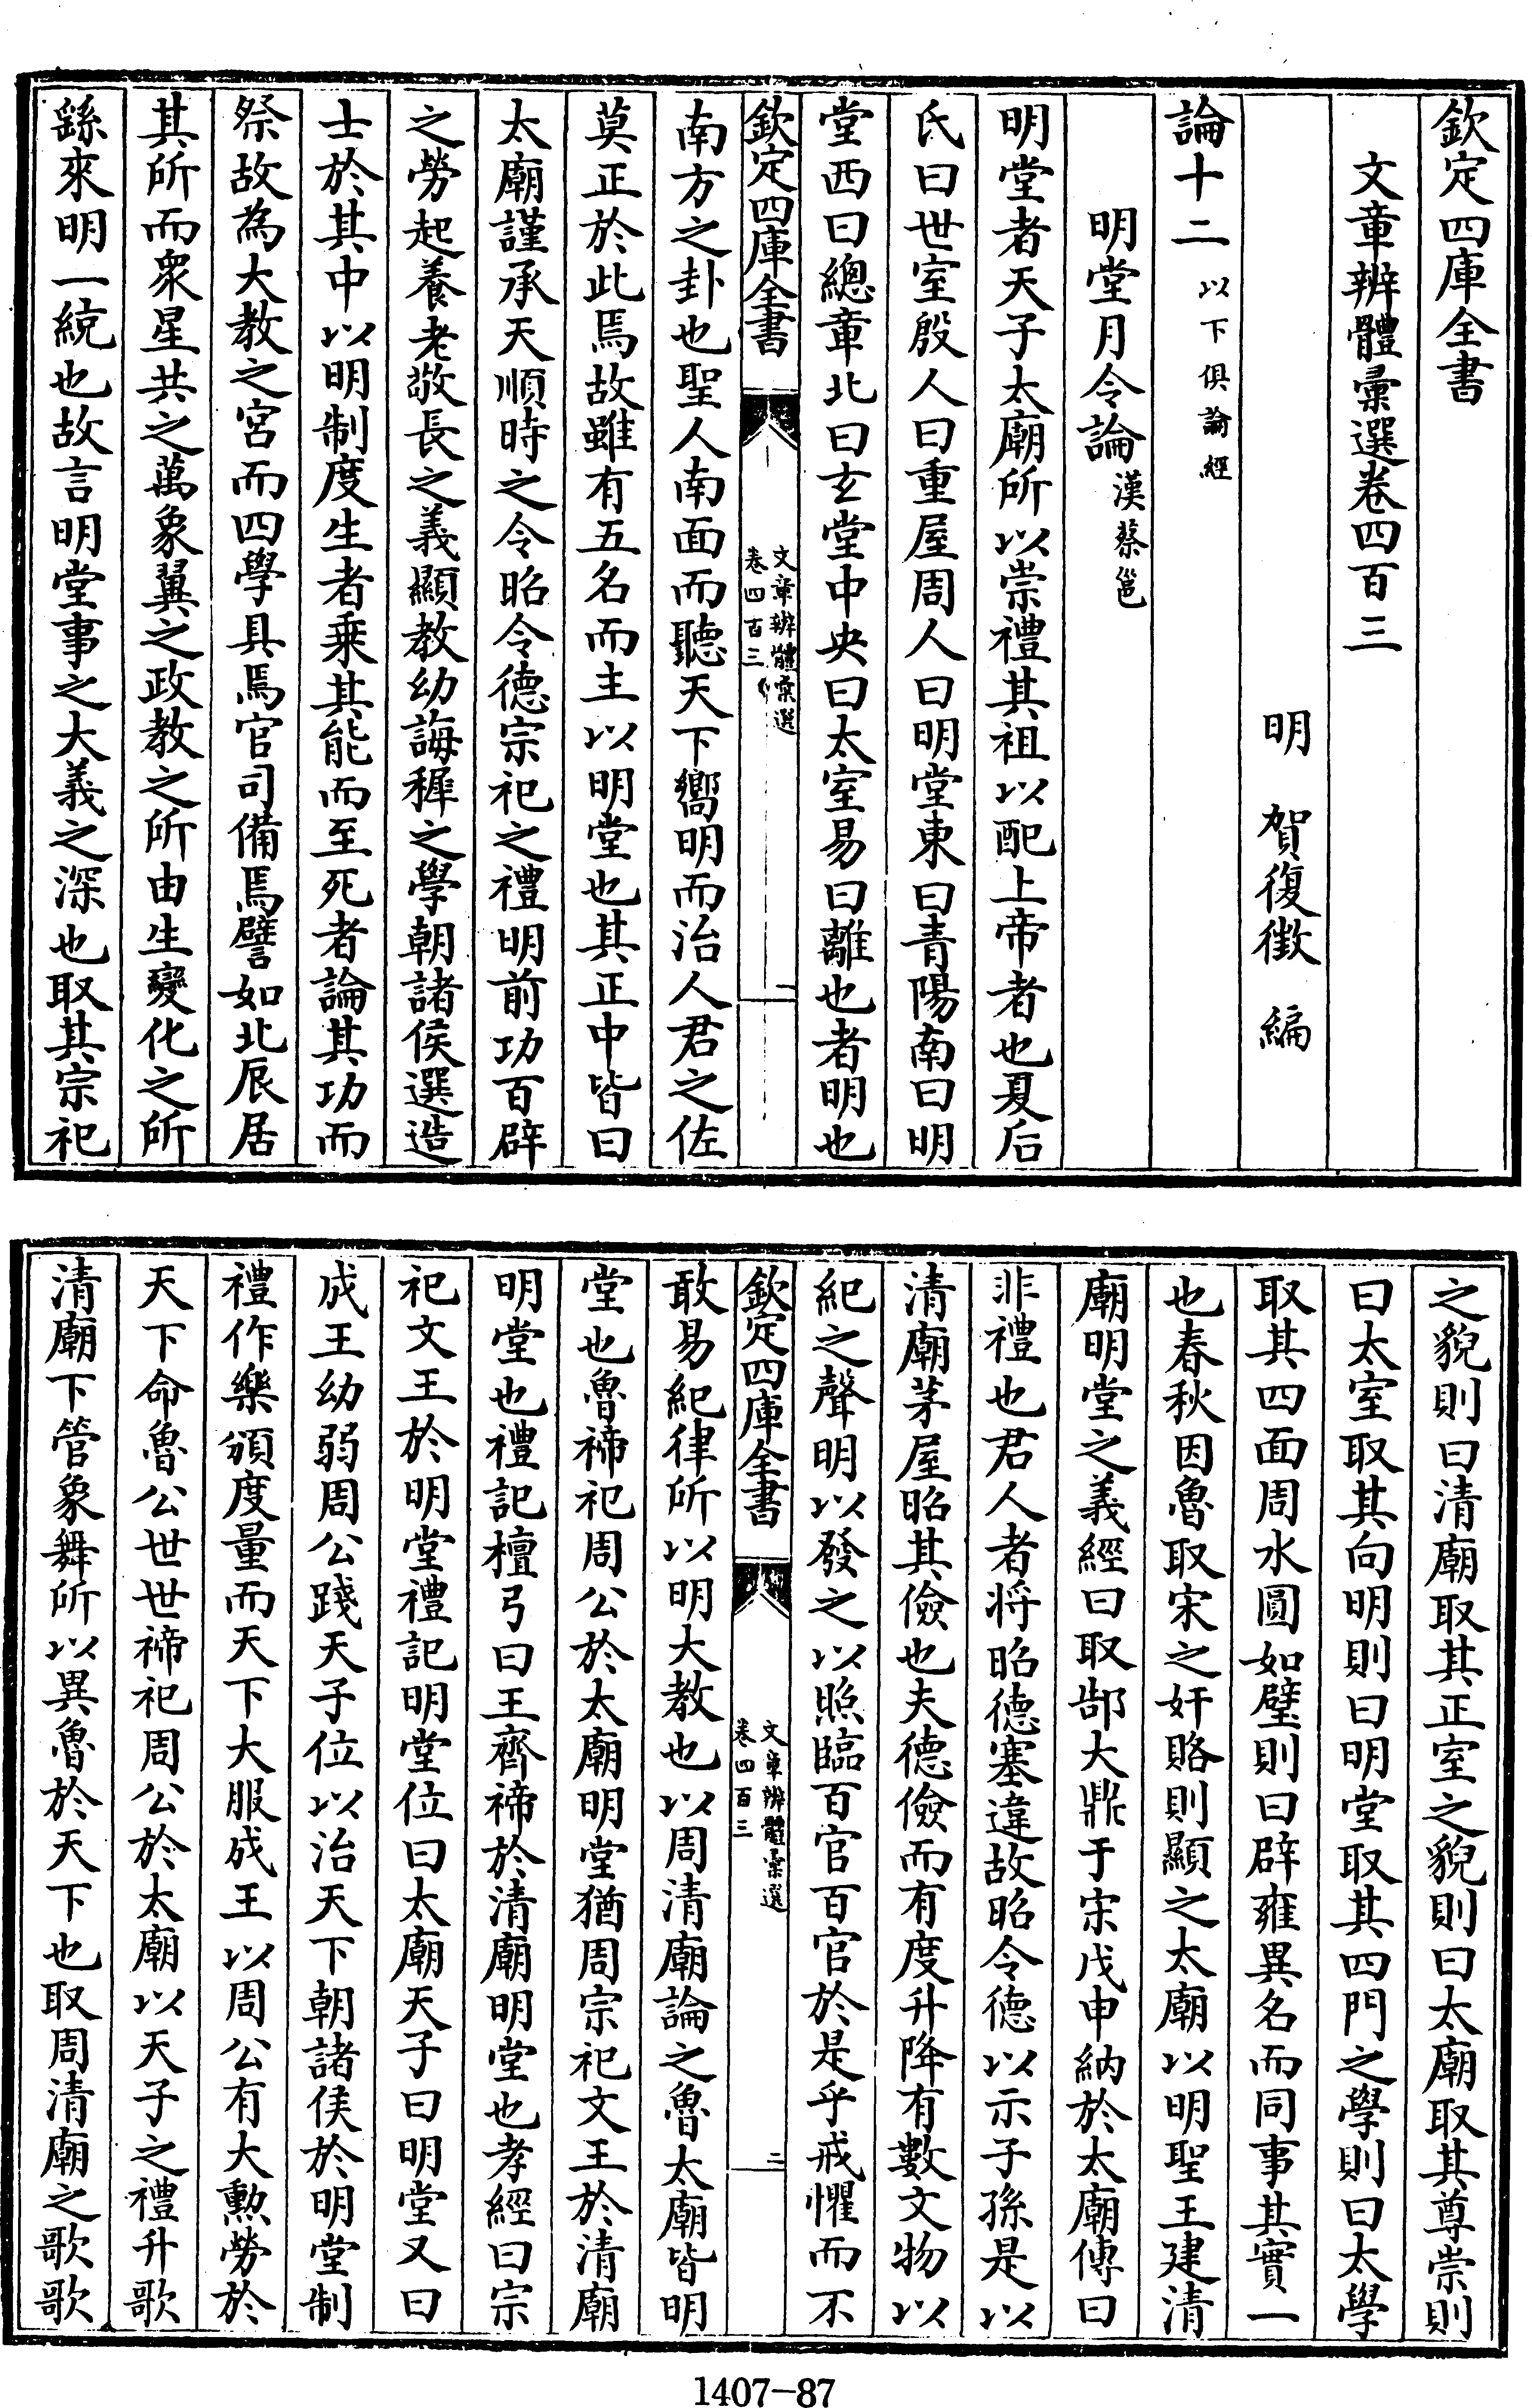 欽定四庫全書
文章辨體彙選卷四百三
明　賀復徵　編
論十二以下俱論經
明堂月令論漢蔡邕
明堂者天子太廟所以崇禮其祖以配上帝者也夏后
氏曰世室殷人曰重屋周人曰明堂東曰青陽南曰明
堂西曰總章北曰玄堂中央曰太室易曰離也者明也
欽定四庫全書
文章辨體彙選
卷四百三
一
南方之卦也聖人南面而聽天下嚮明而治人君之佐
莫正於此焉故雖有五名而主以明堂也其正中皆曰
太廟謹承天順時之令昭令德宗祀之禮明前功百辟
之勞起養老敬長之義顯教幼誨稺之學朝諸侯選造
士於其中以明制度生者乗其能而至死者論其功而
祭故為大教之宮而四學具焉官司備焉譬如北辰居
其所而衆星共之萬象翼之政教之所由生變化之所
繇來明一統也故言明堂事之大義之深也取其宗祀
之貌則曰清廟取其正室之貌則曰太廟取其尊崇則
曰太室取其向明則曰明堂取其四門之學則曰太學
取其四面周水圓如璧則曰辟雍異名而同事其實一
也春秋因魯取宋之奸賂則顯之太廟以明聖王建清
廟明堂之義經曰取郜大鼎于宋戊申納於太廟傳曰
非禮也君人者将昭德塞違故昭令德以示子孫是以
清廟茅屋昭其儉也夫德儉而有度升降有數文物以
紀之聲明以發之以照臨百官百官於是乎戒懼而不
欽定四庫全書
文章辨體彙選
卷四百三
二
敢易紀律所以明大教也以周清廟論之魯太廟皆明
堂也魯禘祀周公於太廟明堂猶周宗祀文王於清廟
明堂也禮記檀弓曰王齊禘於清廟明堂也孝經曰宗
祀文王於明堂禮記明堂位曰太廟天子曰明堂又曰
成王幼弱周公踐天子位以治天下朝諸侯於明堂制
禮作樂頒度量而天下大服成王以周公有大勲勞於
天下命魯公世世禘祀周公於太廟以天子之禮升歌
清廟下管象舞所以異魯於天下也取周清廟之歌歌
1407-87